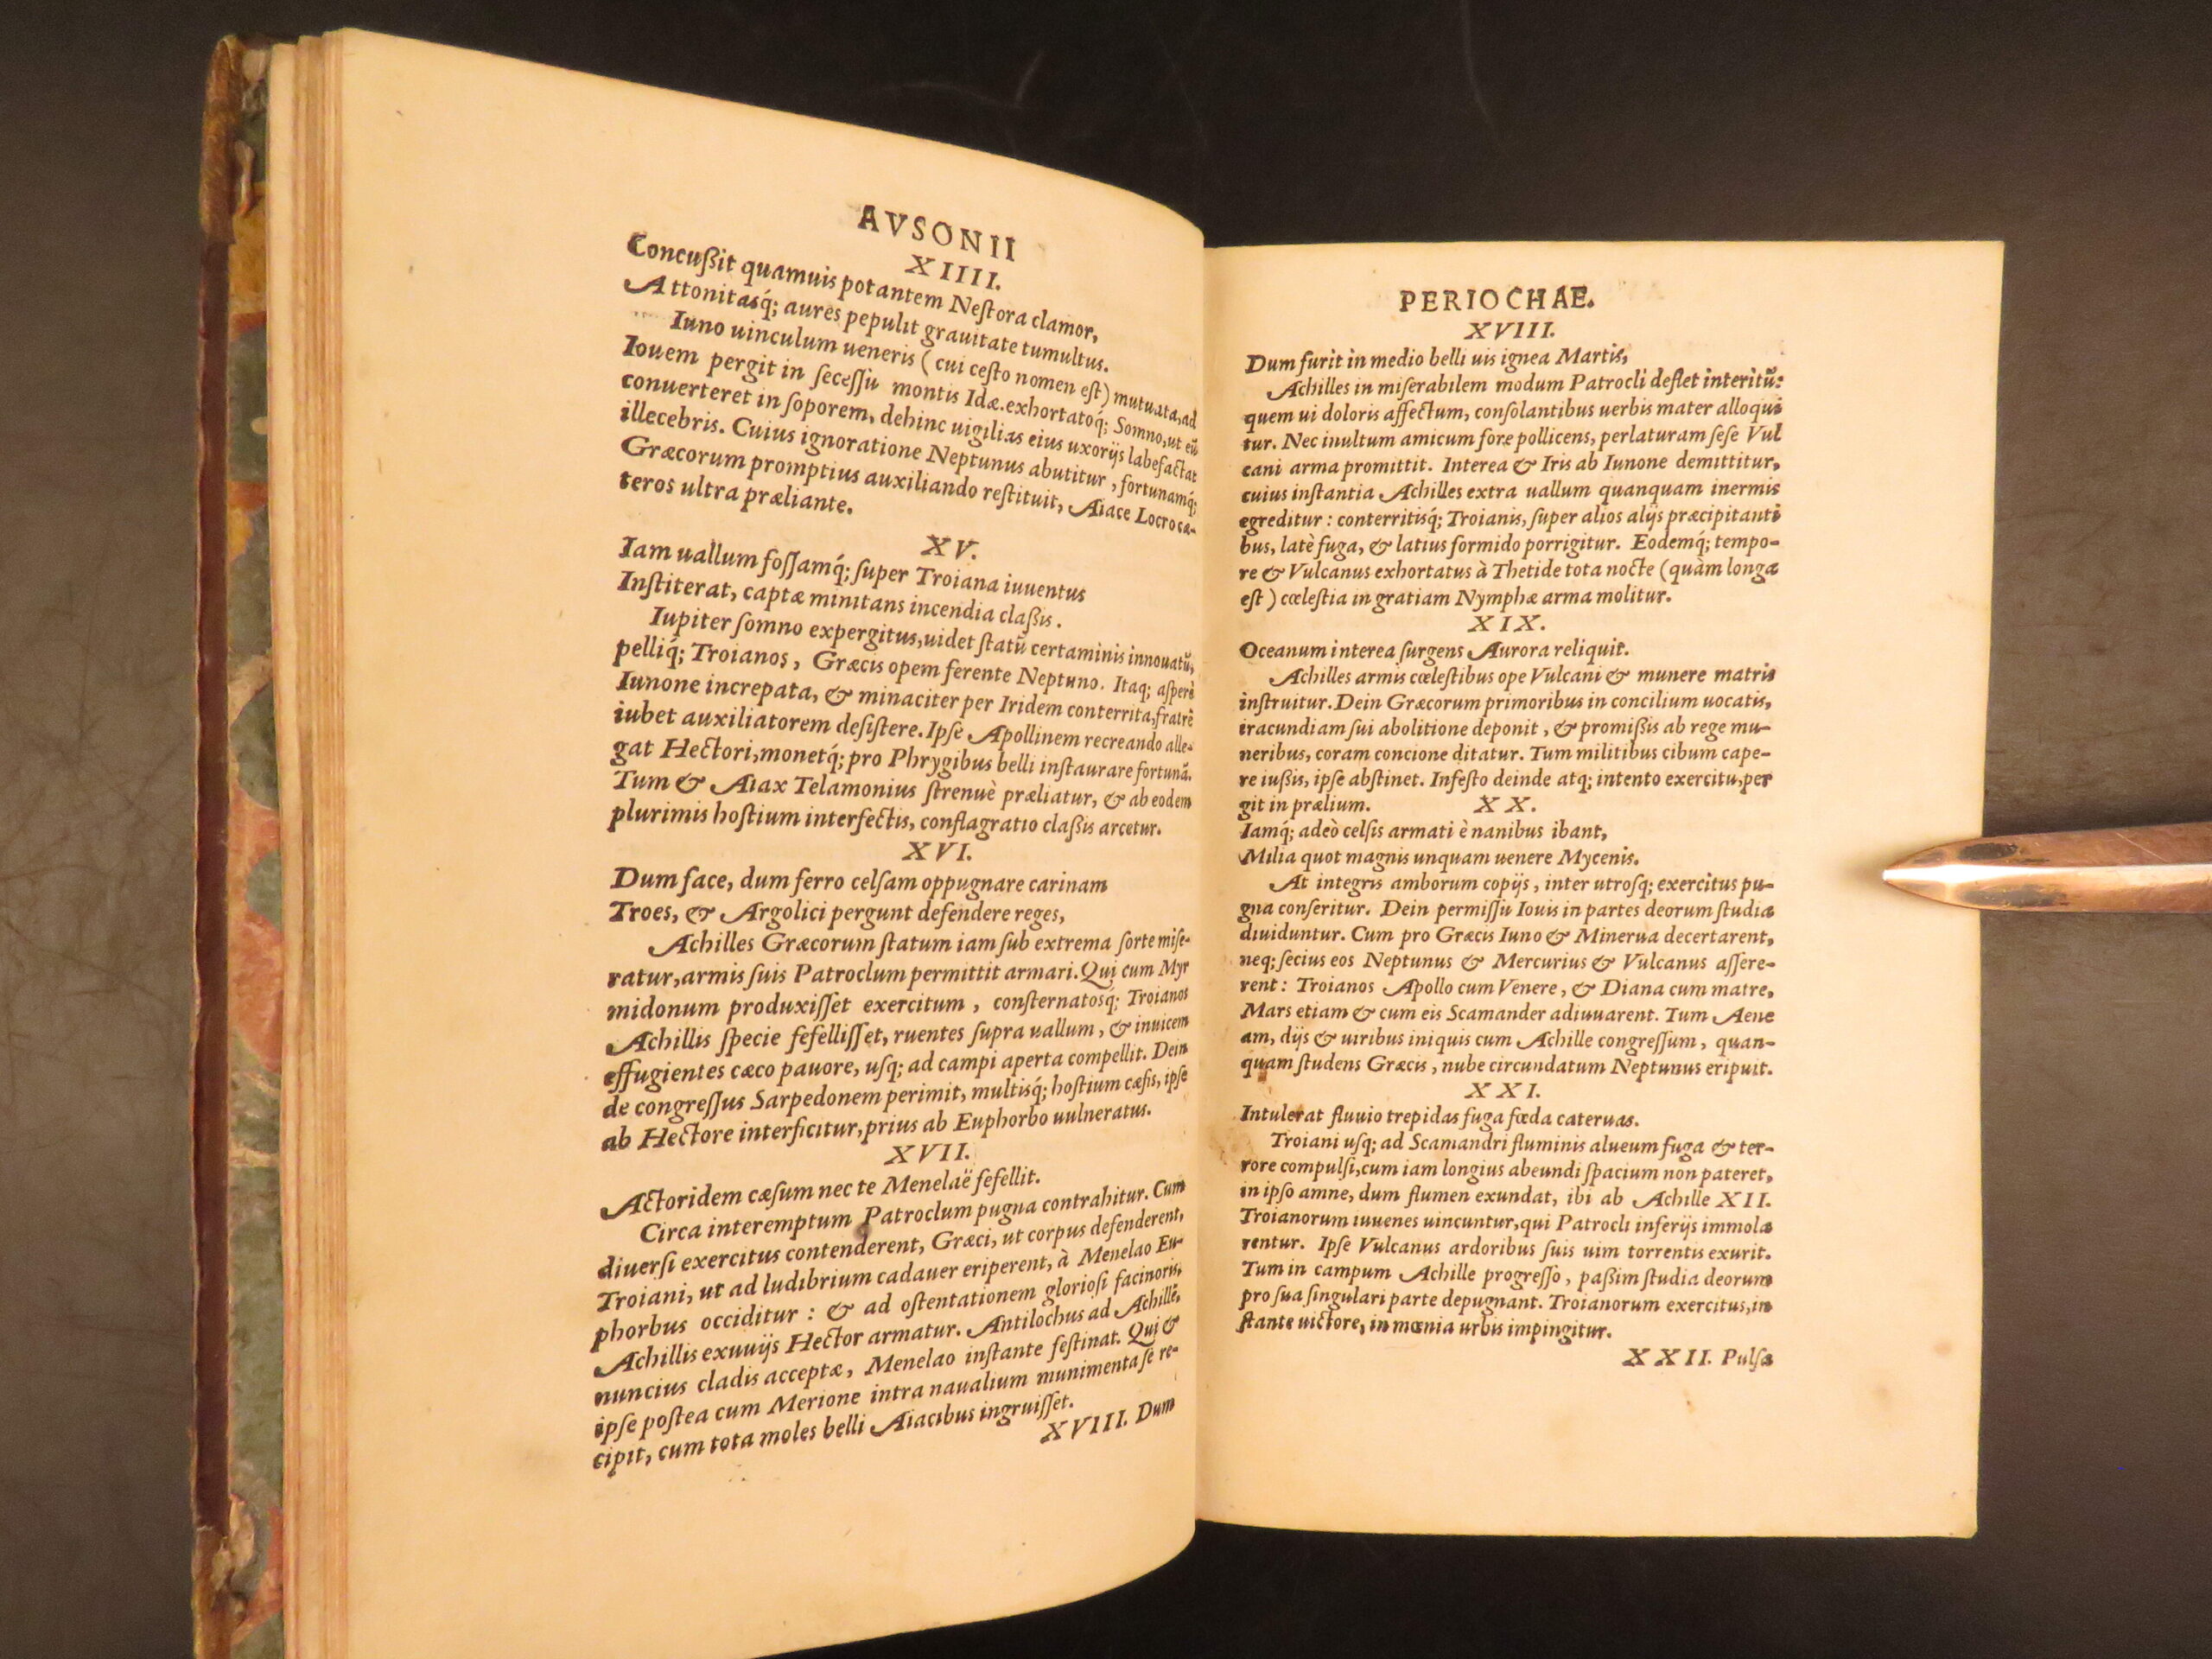 AVSONII
XIIII.
Concußit quamuis potantem Neſtora clamor,
Attonitasq́; aures pepulit grauitate tumultus.
Iuno uinculum ueneris (cui ceſto nomen eſt) mutuata, ad
Iouem pergit in ſeceſſu montis Idæ. exhortatoq́; Somno, ut eū
conuerteret in ſoporem, dehinc uigilias eius uxorijs labefactat
illecebris. Cuius ignoratione Neptunus abutitur, fortunamq́;
Græcorum promptius auxiliando reſtituit, Aiace Locro cæ-
teros ultra præliante.
XV.
Iam uallum foſſamq́; ſuper Troiana iuuentus
Inſtiterat, captæ minitans incendia claßis.
Iupiter ſomno expergitus, uidet ſtatū certaminis innouatū,
pelliq́; Troianos, Græcis opem ferente Neptuno. Itaq; aſperè
Iunone increpata, & minaciter per Iridem conterrita, fratrē
iubet auxiliatorem deſiſtere. Ipſe Apollinem recreando alle-
gat Hectori, monetq́; pro Phrygibus belli inſtaurare fortunā.
Tum & Aiax Telamonius ſtrenuè præliatur, & ab eodem
plurimis hoſtium interfectis, conflagratio claßis arcetur.
XVI.
Dum face, dum ferro celſam oppugnare carinam
Troes, & Argolici pergunt defendere reges,
Achilles Græcorum ſtatum iam ſub extrema ſorte miſe-
ratur, armis ſuis Patroclum permittit armari. Qui cum Myr
midonum produxiſſet exercitum, conſternatosq́; Troianos
Achillis ſpecie fefelliſſet, ruentes ſupra uallum, & inuicem
effugientes cæco pauore, uſq; ad campi aperta compellit. Dein
de congreſſus Sarpedonem perimit, multisq́; hoſtium cæſis, ipſe
ab Hectore interficitur, prius ab Euphorbo uulneratus.
XVII.
Actoridem cæſum nec te Menelaë fefellit.
Circa interemptum Patroclum pugna contrahitur. Cum
diuerſi exercitus contenderent, Græci, ut corpus defenderent,
Troiani, ut ad ludibrium cadauer eriperent, à Menelao Eu-
phorbus occiditur: & ad oſtentationem glorioſi facinoris,
Achillis exuuijs Hector armatur. Antilochus ad Achillē,
nuncius cladis acceptæ, Menelao inſtante feſtinat. Qui &
ipſe poſtea cum Merione intra naualium munimenta ſe re-
cipit, cum tota moles belli Aiacibus ingruiſſet.
XVIII. Dum
PERIOCHAE.
XVIII.
Dum furit in medio belli uis ignea Martis,
Achilles in miſerabilem modum Patrocli deflet interitū:
quem ui doloris affectum, conſolantibus uerbis mater alloqui
tur. Nec inultum amicum fore pollicens, perlaturam ſeſe Vul
cani arma promittit. Interea & Iris ab Iunone demittitur,
cuius inſtantia Achilles extra uallum quanquam inermis
egreditur: conterritisq́; Troianis, ſuper alios alijs præcipitanti
bus, latè fuga, & latius formido porrigitur. Eodemq́; tempo-
re & Vulcanus exhortatus à Thetide tota nocte (quàm longa
eſt) cœleſtia in gratiam Nymphæ arma molitur.
XIX.
Oceanum interea ſurgens Aurora reliquit.
Achilles armis cœleſtibus ope Vulcani & munere matris
inſtruitur. Dein Græcorum primoribus in concilium uocatis,
iracundiam ſui abolitione deponit, & promißis ab rege mu-
neribus, coram concione ditatur. Tum militibus cibum cape-
re iußis, ipſe abſtinet. Infeſto deinde atq; intento exercitu, per
git in prælium. XX.
Iamq́; adeò celſis armati è nanibus ibant,
Milia quot magnis unquam uenere Mycenis.
At integris amborum copijs, inter utroſq; exercitus pu-
gna conſeritur. Dein permiſſu Iouis in partes deorum ſtudia
diuiduntur. Cum pro Græcis Iuno & Minerua decertarent,
neq; ſecius eos Neptunus & Mercurius & Vulcanus aſſere-
rent: Troianos Apollo cum Venere, & Diana cum matre,
Mars etiam & cum eis Scamander adiuuarent. Tum Aene
am, dijs & uiribus iniquis cum Achille congreſſum, quan-
quam ſtudens Græcis, nube circundatum Neptunus eripuit.
XXI.
Intulerat fluuio trepidas fuga fœda cateruas.
Troiani uſq; ad Scamandri fluminis alueum fuga & ter-
rore compulſi, cum iam longius abeundi ſpacium non pateret,
in ipſo amne, dum flumen exundat, ibi ab Achille XII.
Troianorum iuuenes uincuntur, qui Patrocli inferijs immola
rentur. Ipſe Vulcanus ardoribus ſuis uim torrentis exurit.
Tum in campum Achille progreſſo, paßim ſtudia deorum
pro ſua ſingulari parte depugnant. Troianorum exercitus, in
ſtante uictore, in mœnia urbis impingitur.
XXII. Pulſa